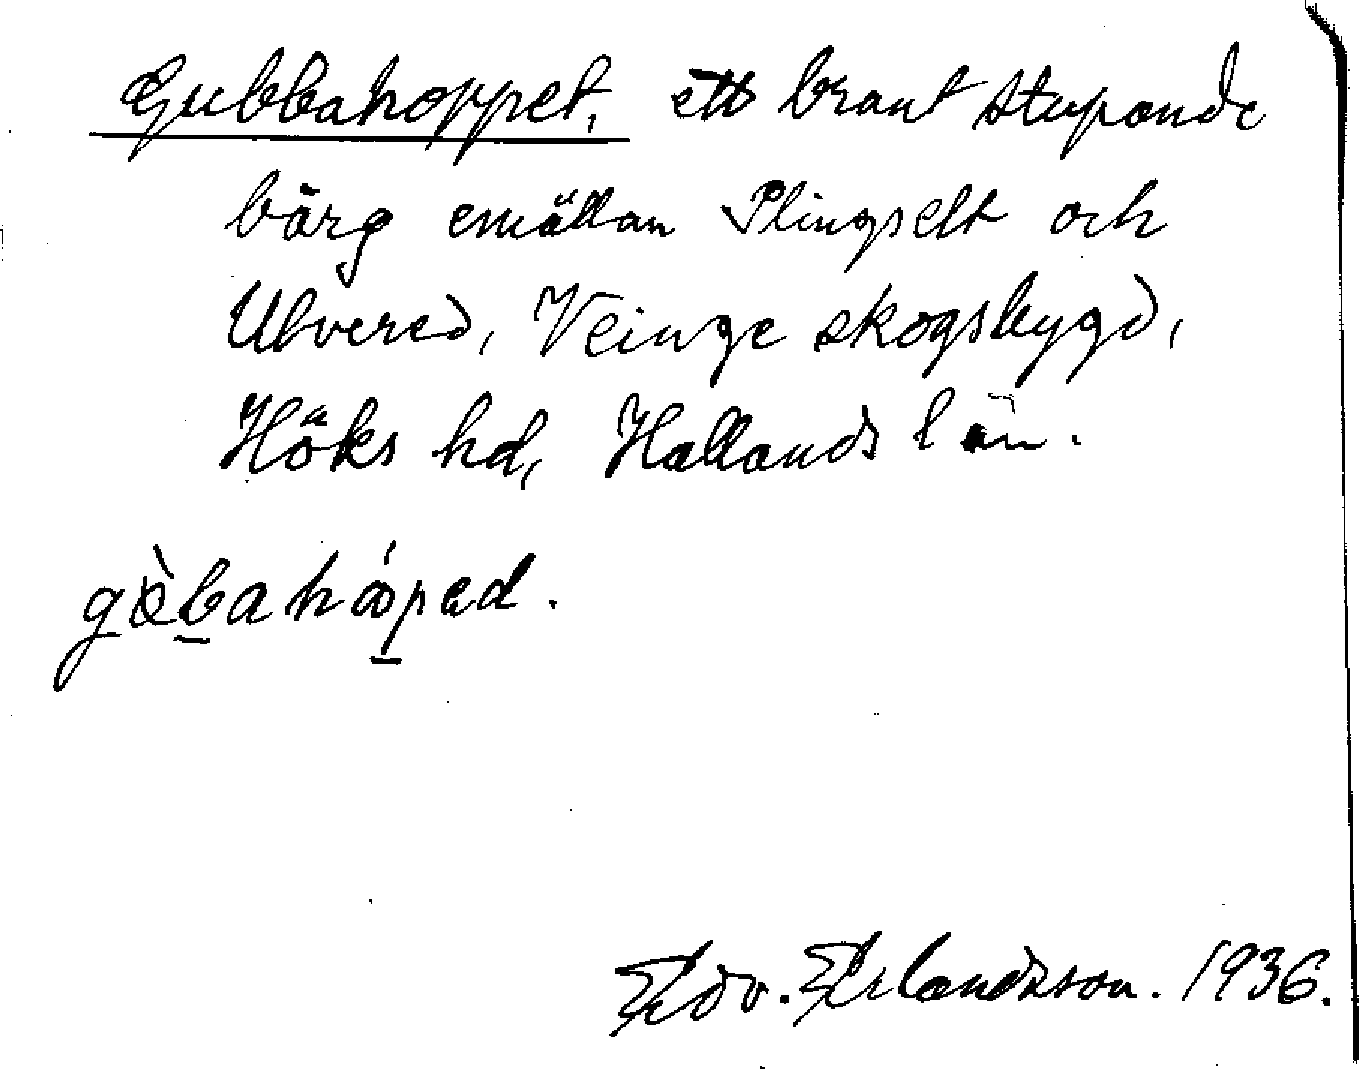 Gubbahoppet, ett brant stupande
bärg emällan Plingselt och
Ulvered, Veinge skogsbygd,
Höks hd, Hallands län.
gòbahåped.
Edv. Erlandsson. 1936.